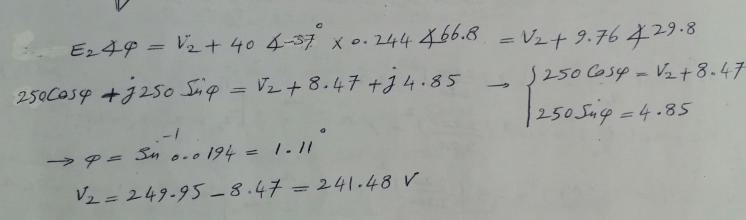 E₂∠φ = V₂ + 40 ∠-37° × 0.244 ∠66.8 = V₂ + 9.76 ∠29.8
250Cosφ + j250 Sinφ = V₂ + 8.47 + j4.85 → { 250 Cosφ = V₂ + 8.47
250 Sinφ = 4.85
→ φ = Sin⁻¹ 0.0194 = 1.11°
V₂ = 249.95 - 8.47 = 241.48 V